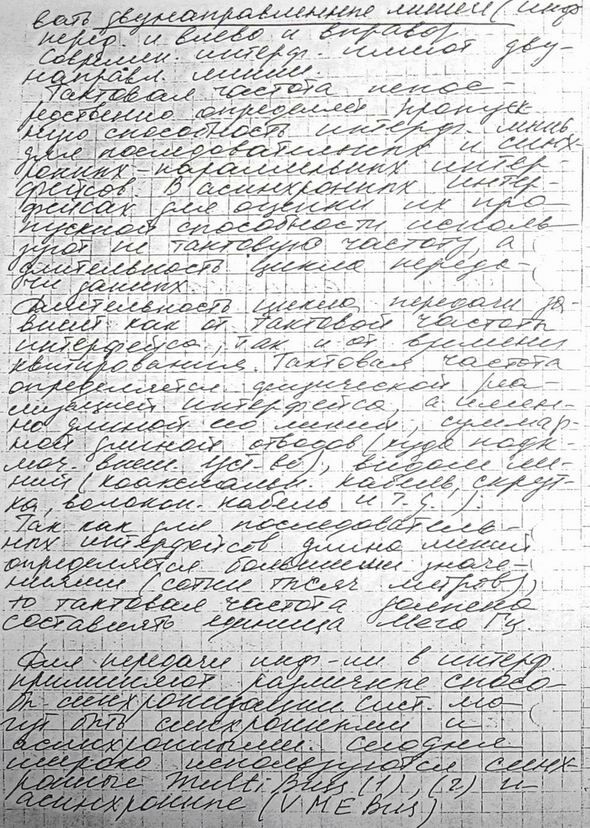 вать двунаправленные линии (инф
перед. и влево и вправо)
Современ. интерф. имеют дву-
направл. линии.
Тактовая частота непос-
редственно определяет пропуск
ную способность интерф. лишь
для последовательных и синх-
ронных-параллельных интер-
фейсов. В асинхронных интер-
фейсах для оценки их про-
пускной способности исполь-
зуют не тактовую частоту, а
длительность цикла переда-
чи данных.
Длительность цикла передачи за-
висит как от тактовой частоты
интерфейса, так и от времени
квитирования. Тактовая частота
определяется физической реа-
лизацией интерфейса, а имен-
но длиной его линии, суммар-
ной длиной отводов (куда подк-
люч. внеш. уст-во), видом ли-
нии (коаксиальн. кабель, скрут-
ка, волокон. кабель и т.д.).
Так как для последователь-
ных интерфейсов длина линий
определяется большими значе-
ниями (сотни тысяч метров),
то тактовая частота должна
составлять единица Мега Гц.
Для передачи инф-ии в интерф
применяют различные спосо-
бы синхронизации. Сист. мо-
гут быть синхронными и
асинхронными. Сегодня
широко используются синх
ронные Multi Bus (1), (2) и
асинхронные (VME Bus)